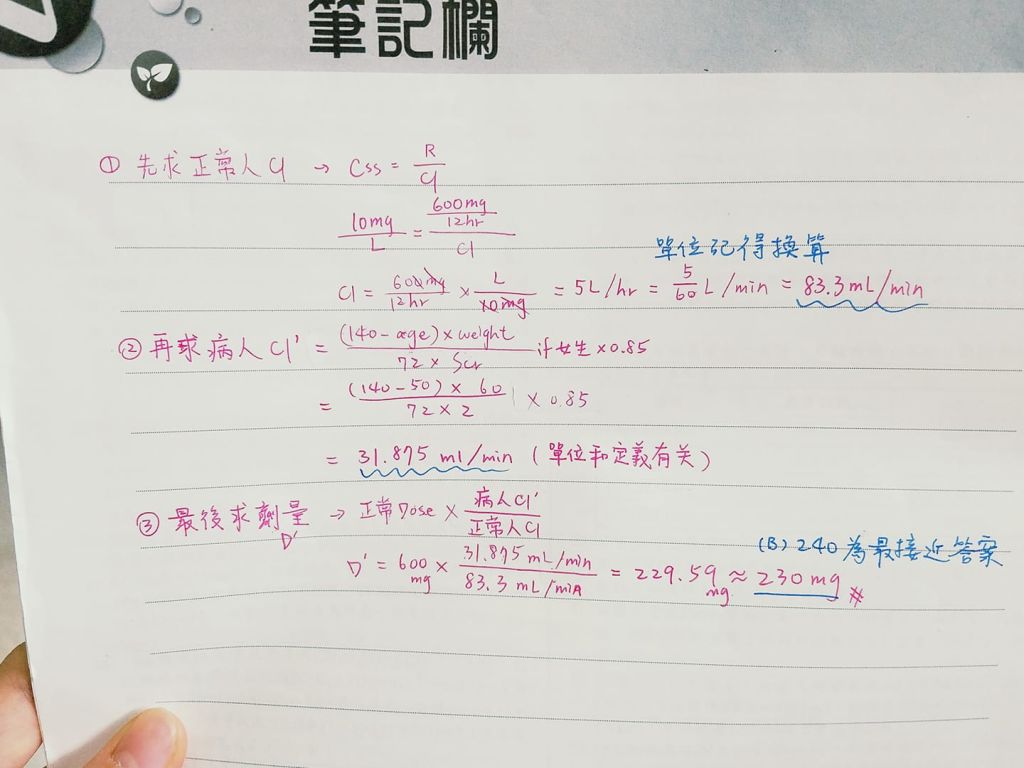 筆記欄
① 先求正常人 Cl → Css = R / Cl
10mg / L = (600mg / 12hr) / Cl
單位記得換算
Cl = 600mg / 12hr × L / 10mg = 5L/hr = 5/60 L/min = 83.3mL/min
② 再求病人 Cl' = (140-age)×weight / 72×Scr if 女生×0.85
= (140-50)×60 / 72×2 × 0.85
= 31.875 ml/min (單位和定義有关)
③ 最後求劑量 D' → 正常Dose × 病人Cl' / 正常人Cl
(B) 240 為最接近答案
D' = 600 mg × 31.875 mL/min / 83.3 mL/min = 229.59 mg ≈ 230 mg #